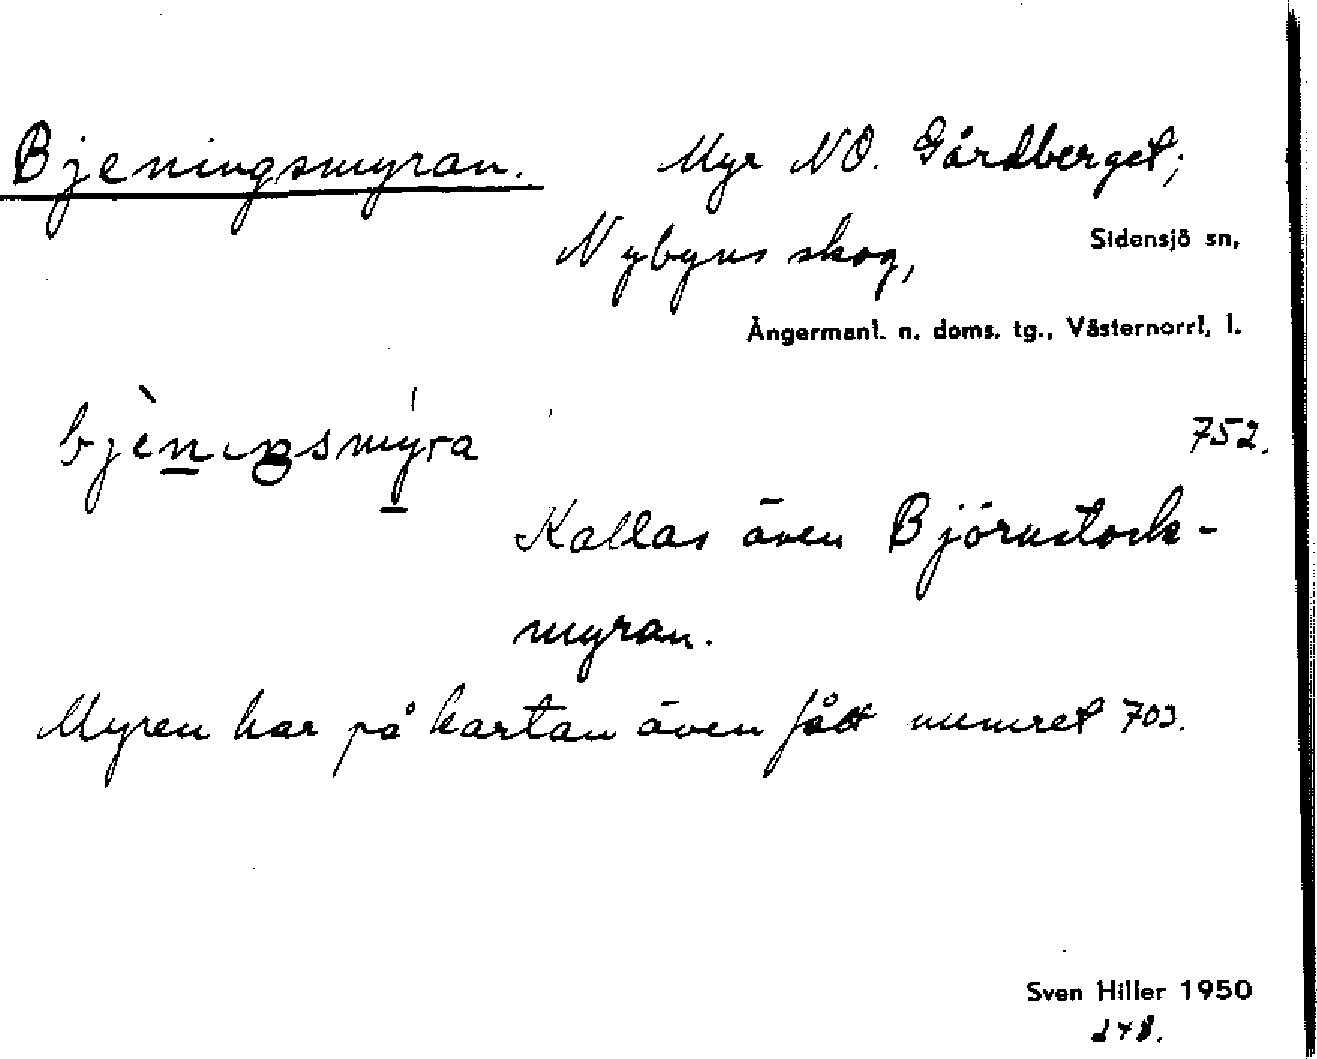 Bjeningsmyran. Myr NO. Gårdberget;
Nybyns skog, Sidensjö sn,
Ångermanl. n. doms. tg., Västernorrl. l.
bjèningsmýra 752.
Kallas även Björnstock-
myran.
Myren har på kartan även fått numret 703.
Sven Hiller 1950